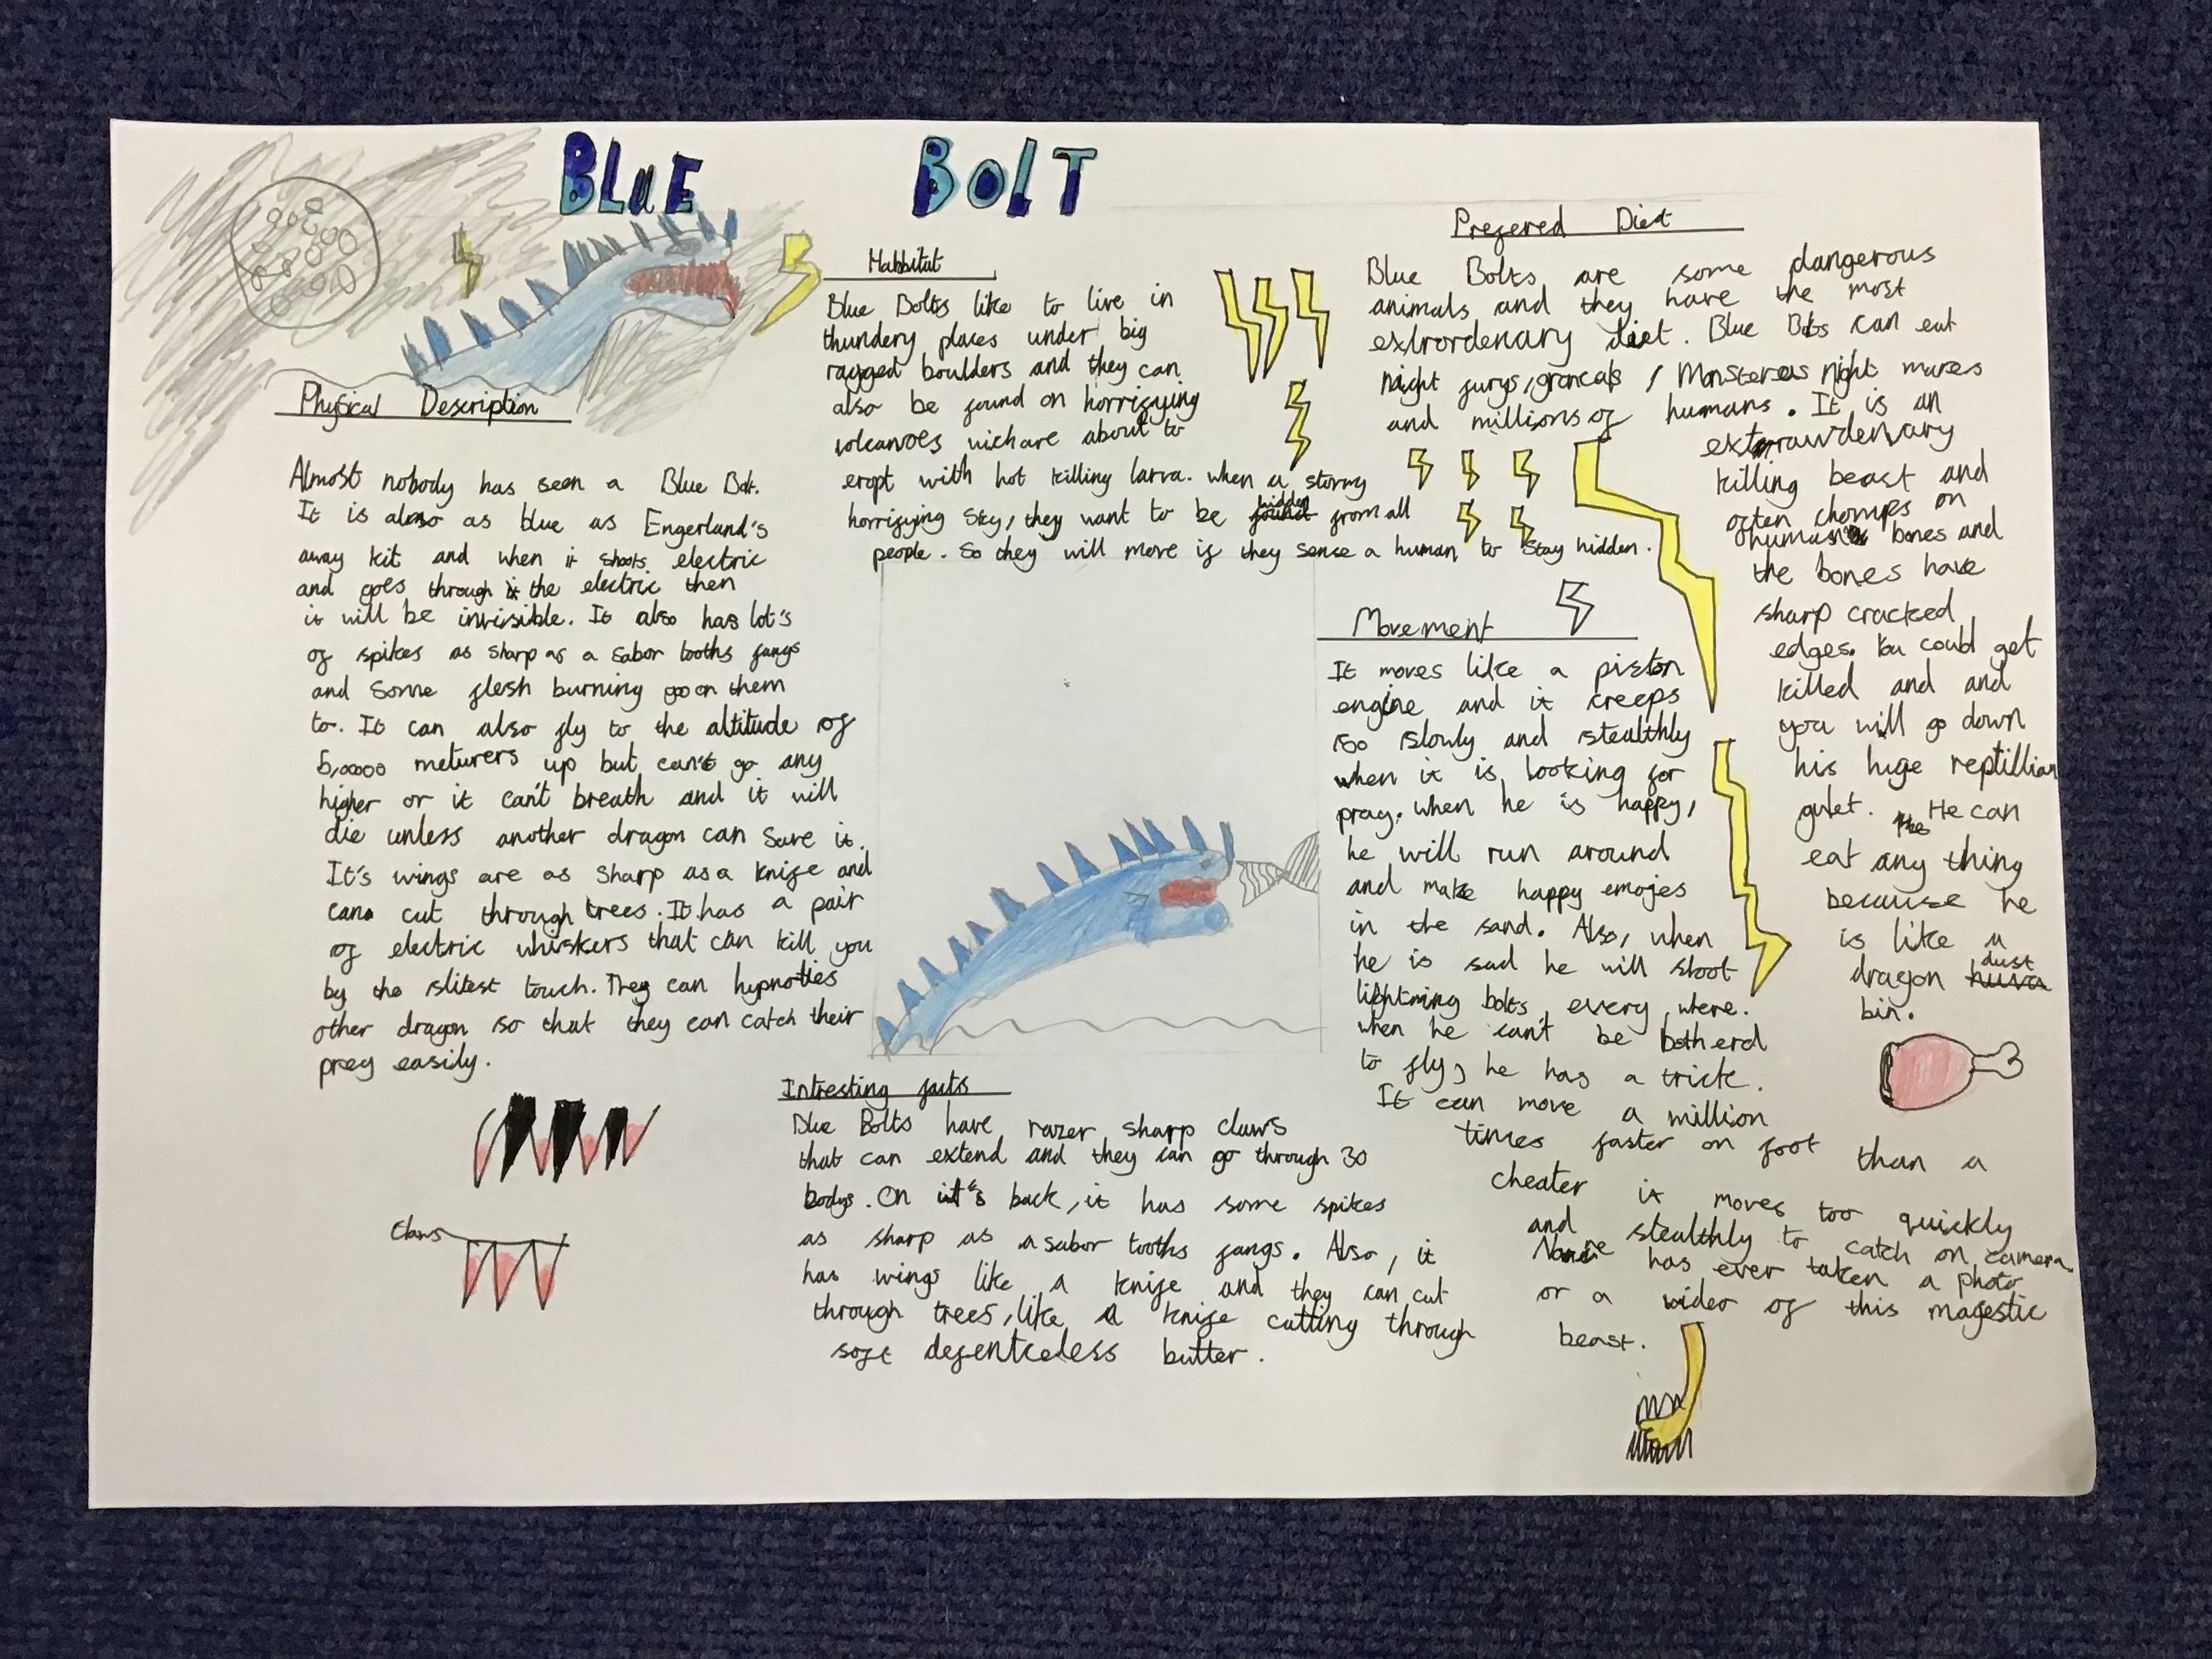 BLUE BOLT
Physical Description
Almost nobody has seen a Blue Bolt.
It is also as blue as Engerland's
away kit and when it shoots electric
and goes through the electric then
it will be invisible. It also has lot's
of spikes as sharp as a sabor tooths fangs
and some flesh burning goo on them
to. It can also fly to the altitude of
5,0000 meturers up but can't go any
higher or it can't breath and it will
die unless another dragon can save it.
It's wings are as sharp as a knife and
can cut through trees. It has a pair
of electric whiskers that can kill you
by the slitest touch. They can hypnoties
other dragon so that they can catch their
prey easily.
Claws
Habbitat
Blue Bolts like to live in
thundery places under big
ragged boulders and they can
also be found on horrifying
volcanoes wich are about to
eropt with hot killing larva. when a stormy
horrifying sky, they want to be found hidden from all
people. So they will move if they sense a human to stay hidden.
Intresting facts
Blue Bolts have razer sharp claws
that can extend and they can go through 30
bodys. On it's back, it has some spikes
as sharp as a sabor tooths fangs. Also, it
has wings like a knife and they can cut
through trees, like a knife cutting through
soft defenteless butter.
Prefered Diet
Blue Bolts are some dangerous
animals and they have the most
extrordenary diet. Blue Bolts can eat
night furys, groncals, Monsterous night mares
and millions of humans. It is an
extrawdenary
killing beast and
often chomps on
humans bones and
the bones have
sharp cracked
edges. You could get
killed and and
you will go down
his huge reptillian
gulet. He can
eat any thing
because he
is like a
dragon dust
bin.
Movement
It moves like a piston
engine and it creeps
so slowly and stealthly
when it is looking for
pray. when he is happy,
he will run around
and make happy emojes
in the sand. Also, when
he is sad he will shoot
lightning bolts every where.
when he can't be botherd
to fly, he has a trick.
It can move a million
times faster on foot than a
cheater it moves too quickly
and stealthly to catch on camera.
None has ever taken a photo
or a video of this magestic
beast.